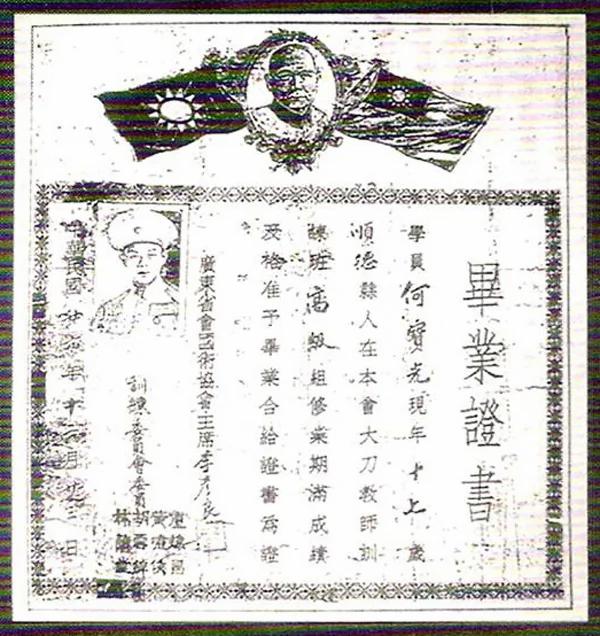 畢業證書
學員何寶光現年十七歲
順德縣人在本會大刀教師訓
練班高級組修業期滿成績
及格准予畢業合給證書為證
廣東省會國術協會主席李彥良
訓練委員會委員
中華民國年十月日